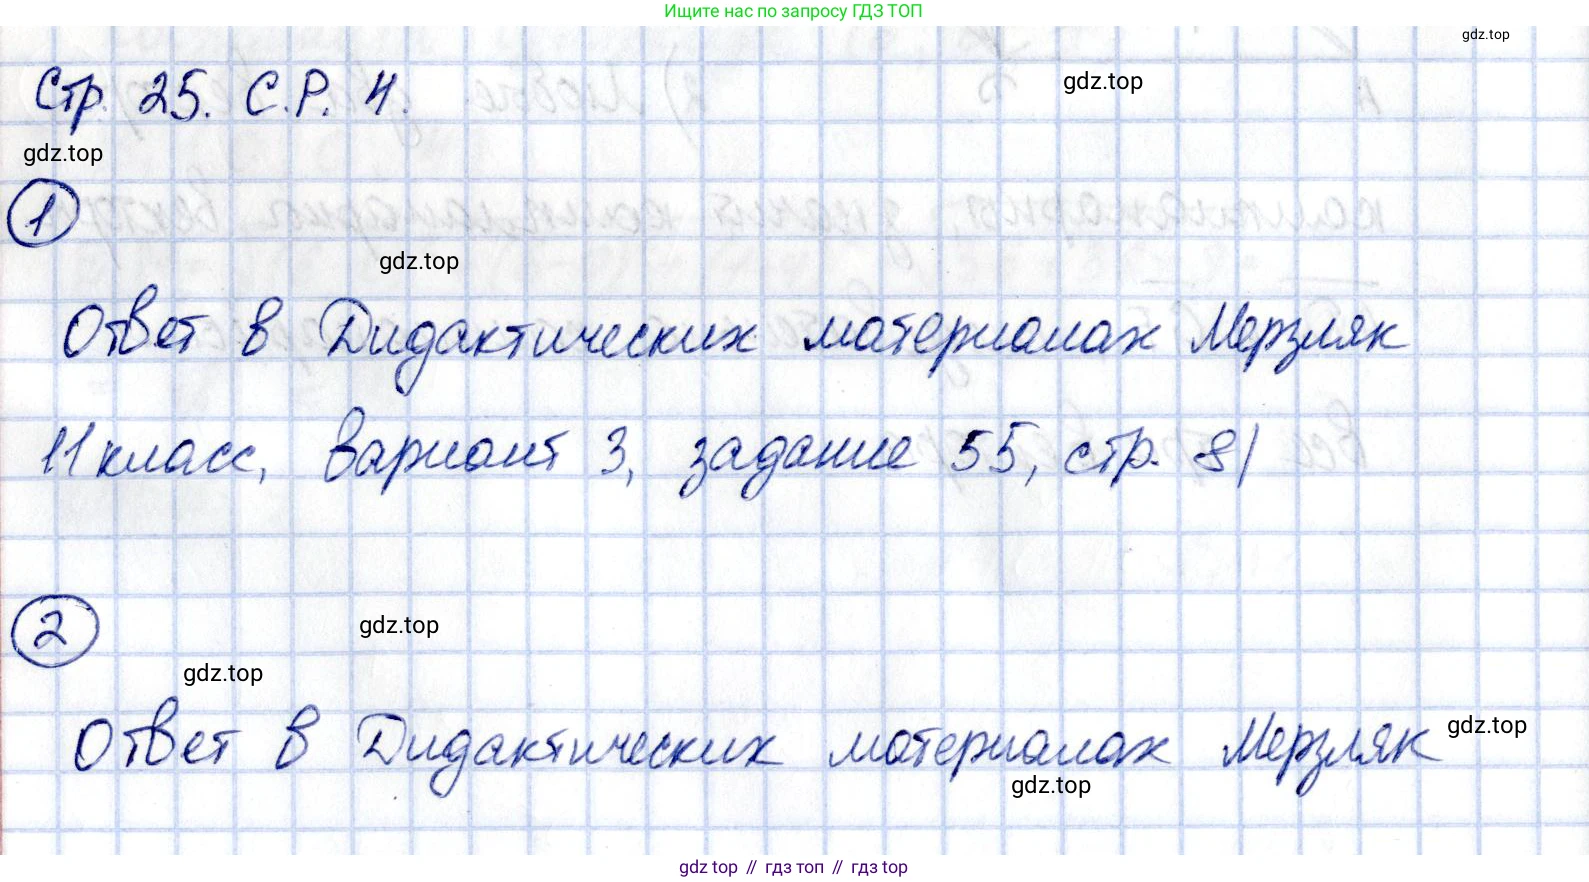 Ищите нас по запросу ГДЗ ТОП
gdz.top
Стр. 25. С.Р. 4.
gdz.top
gdz.top
1
gdz.top
Ответ в Дидактических материалах Мерзляк
11 класс, Вариант 3, задание 55, стр. 81
2
gdz.top
gdz.top
Ответ в Дидактических материалах Мерзляк
gdz.top
gdz.top
gdz.top // гдз топ // гдз top